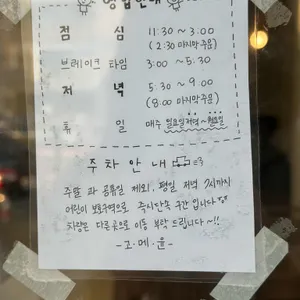 영업안내
점 심 11:30 ~ 3:00
(2:30 마지막 주문)
브레이크 타임 3:00 ~ 5:30
저 녁 5:30 ~ 9:00
(8:00 마지막 주문)
휴 일 매주 일요일 저녁 ~ 월요일
주 차 안 내
주말 과 공휴일 제외, 평일 저녁 7시까지
어린이 보호구역으로 즉시단속 구간 입니다
차량은 다른곳으로 이동 부탁 드립니다 ~!!
- 고 · 메 · 윤 -